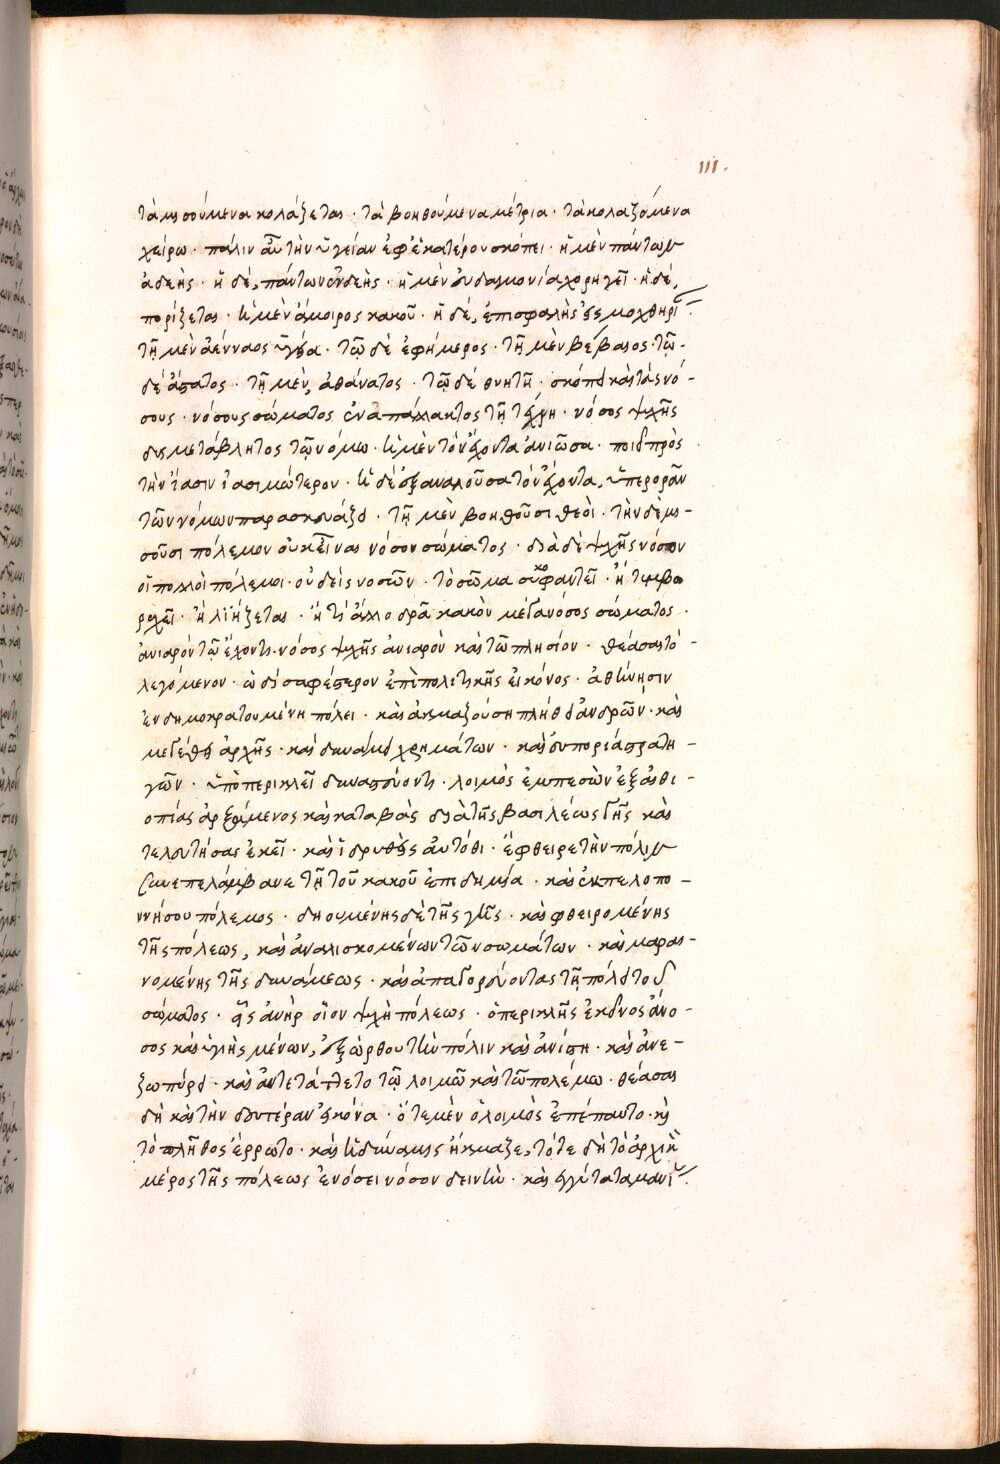 111.
τὰ μισούμενα κολάζεται · τὰ βοηθούμενα μέτρια · τὰ κολαζόμενα
χείρω · πάλιν αὖ τὴν ὑγείαν ἐφ' ἑκατέρου σκόπει · ἡ μὲν πάντων
ἀδεὴς · ἡ δέ, πάντων ἐνδεὴς · ἡ μὲν εὐδαιμονίαν χορηγεῖ · ἡ δέ,
πορίζεται · ἡ μὲν ἄμοιρος κακοῦ · ἡ δέ, ἐπισφαλὴς εἰς μοχθηρί
τῇ μὲν ἀένναος ὑγεία · τῷ δὲ ἐφήμερος · τῇ μὲν βέβαιος · τῷ -
δὲ ἄστατος · τῇ μὲν, ἀθάνατος · τῷ δὲ θνητὴ · σκόπει καὶ τὰς νό -
σους · νόσους σώματος εὐαπάλλακτος τῇ τέχνη · νόσος ψυχῆς
δυσμετάβλητος τῷ νόμω · ἡ μὲν τὸν ἔχοντα ἀνιῶσα · ποιεῖ πρὸς
τὴν ἴασιν ἰασιμώτερον · ἡ δὲ ἐξαναλοῦσα τὸν ἔχοντα, ὑπερορᾶν
τῶν νόμων παρασκευάζει · τῇ μὲν βοηθοῦσι θεοὶ · τὴν δὲ μι -
σοῦσι πόλεμον οὐ κεῖναι νόσον σώματος · διὰ δὲ ψυχῆς νόσον
οἱ πολλοὶ πόλεμοι · οὐδεὶς νοσῶν · τὸ σῶμα συκοφαντεῖ · ἢ τυμβω
ρυχεῖ · ἢ ληΐζεται · ἤ τι ἄλλο δρᾶ κακὸν μέγα νόσος σώματος ·
ἀνιαρὸν τῷ ἔχοντι · νόσος ψυχῆς ἀνιαρὸν καὶ τῶ πλησίον · θέασαι τὸ -
λεγόμενον · ὡδὶ σαφέστερον ἐπὶ πολιτικῆς εἰκόνος · ἀθήνησιν
ἐν δημοκρατουμένη πόλει · καὶ ἀκμαζούση πλήθει ἀνδρῶν · καὶ
μεγέθει ἀρχῆς · καὶ δυνάμει χρημάτων · καὶ εὐπορία στρατη -
γῶν · ὑπὸ περικλεῖ δυναστεύοντι · λοιμὸς ἐμπεσὼν ἐξ αἰθι -
οπίας ἀρξάμενος καὶ καταβὰς διὰ τῆς βασιλέως γῆς καὶ
τελευτήσας ἐκεῖ · καὶ ἱδρυθεὶς αὐτόθι · ἔφθειρε τὴν πόλιν
συνεπελάμβανε τῇ τοῦ κακοῦ ἐπιδημία · καὶ ἐκ πελοπο -
ννήσου πόλεμος · δηουμένης δὲ τῆς γῆς · καὶ φθειρομένης
τῆς πόλεως, καὶ ἀναλισκομένων τῶν σωμάτων · καὶ μαραι -
νομένης τῆς δυνάμεως · καὶ ἀπαγορεύοντος τῇ πόλει τοῦ
σώματος · εἷς ἀνὴρ οἷον ψυχὴ πόλεως · ὁ περικλῆς ἐκεῖνος ἄνο -
σος καὶ ὑγιὴς μένων, ἐξώρθου τὴν πόλιν καὶ ἀνίστη · καὶ ἀνε -
ζωπύρει · καὶ ἀντετάττετο τῷ λοιμῶ καὶ τῶ πολέμω · θέασαι
δὴ καὶ τὴν δευτέραν εἰκόνα · ὅτε μὲν ὁ λοιμὸς ἐπέπαυτο · καὶ
τὸ πλῆθος ἔρρωτο · καὶ ἡ δύναμις ἤκμαζε, τότε δὴ τὸ ἀρχικὸν
μέρος τῆς πόλεως ἐνόσει νόσον δεινὴν · καὶ ἐγγύτατα μανί